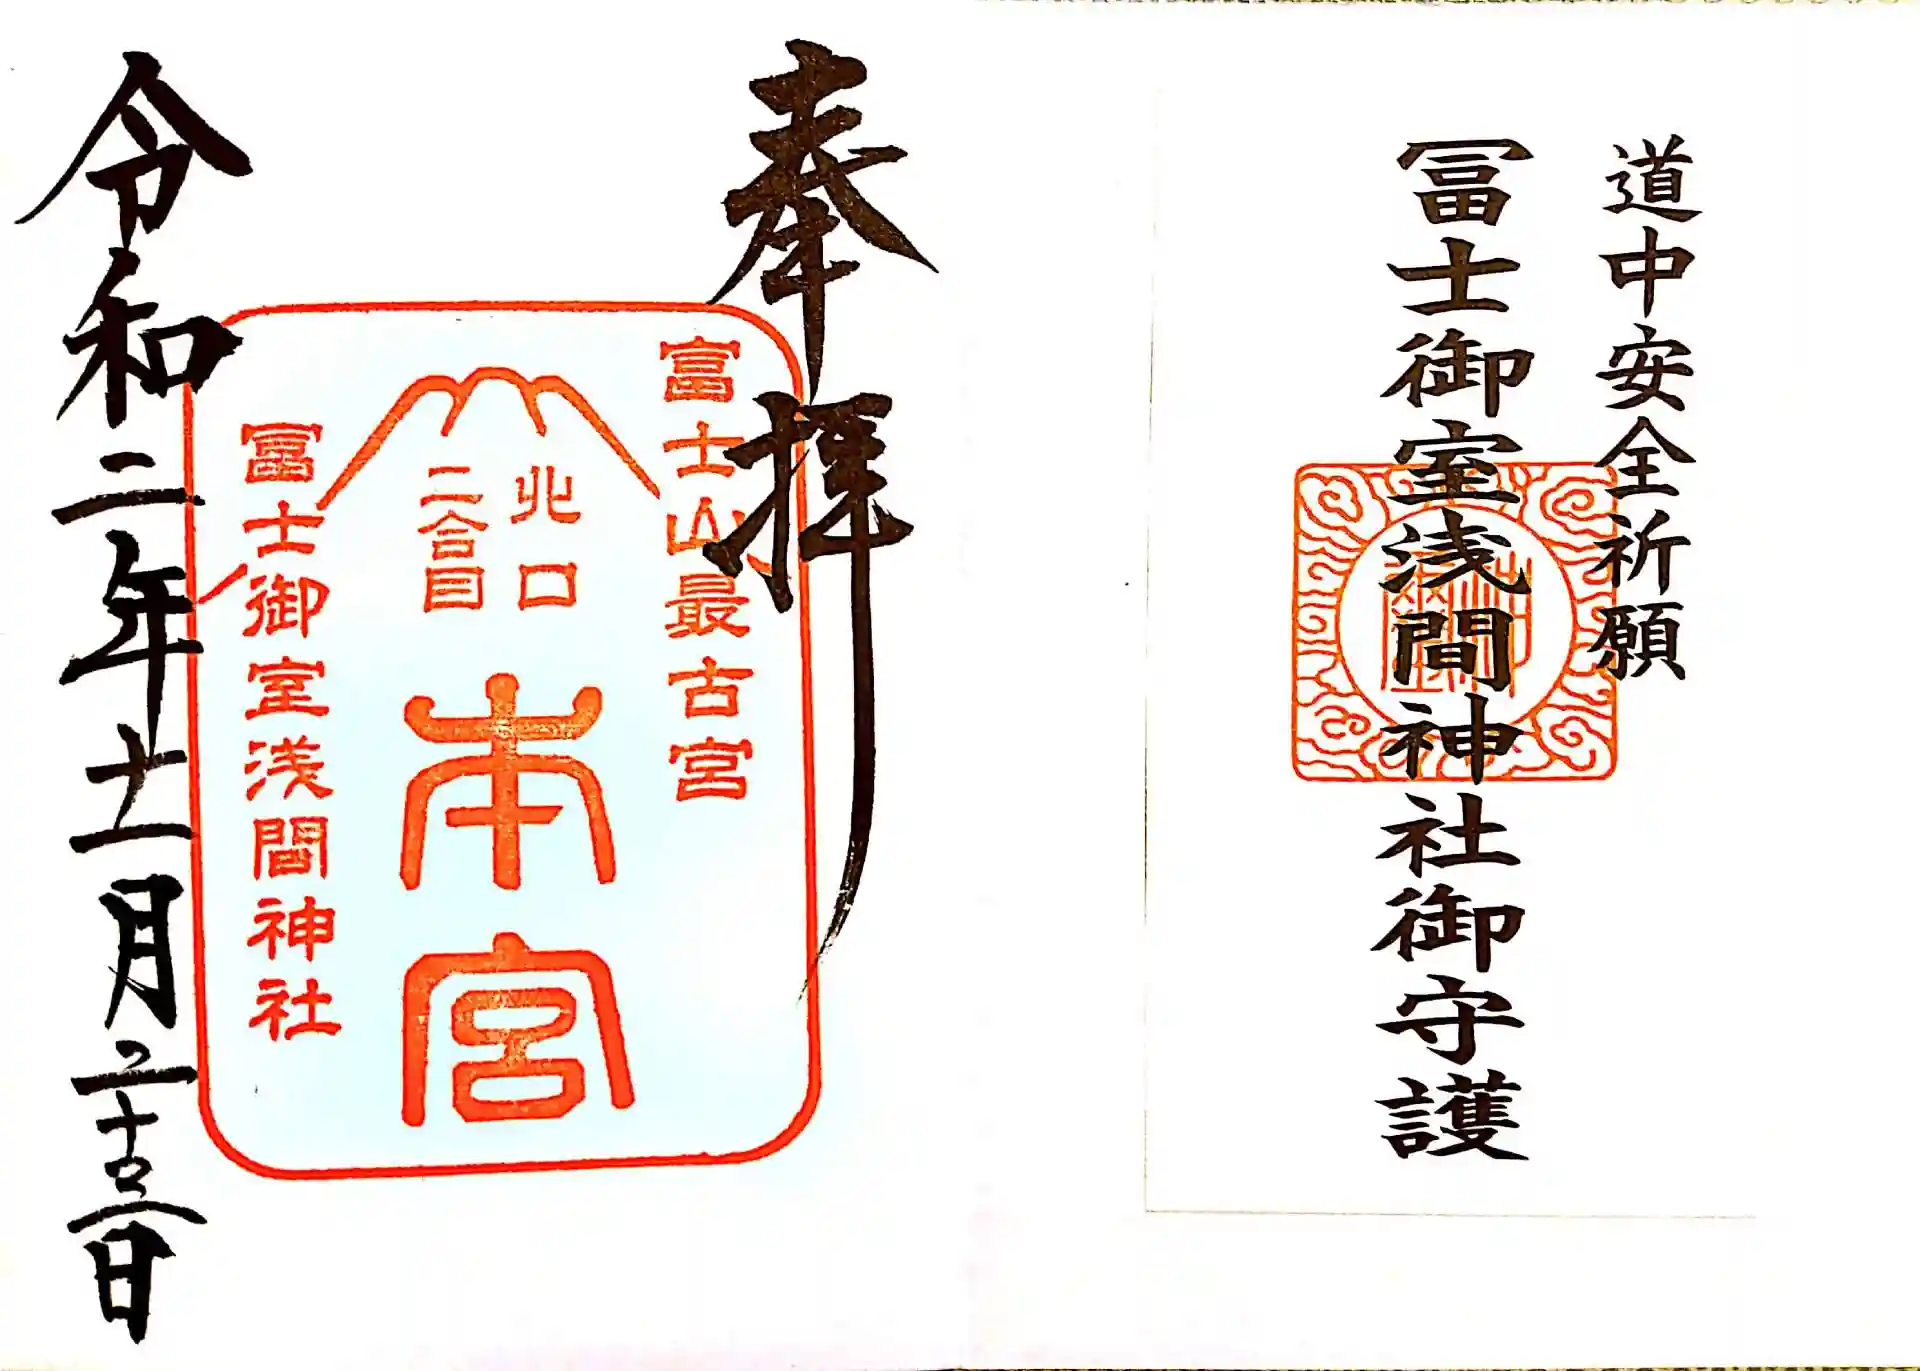 道中安全祈願
冨士御室浅間神社御守護
奉拝
富士山最古宮
北口
二合目
本宮
冨士御室浅間神社
令和二年十一月二十三日